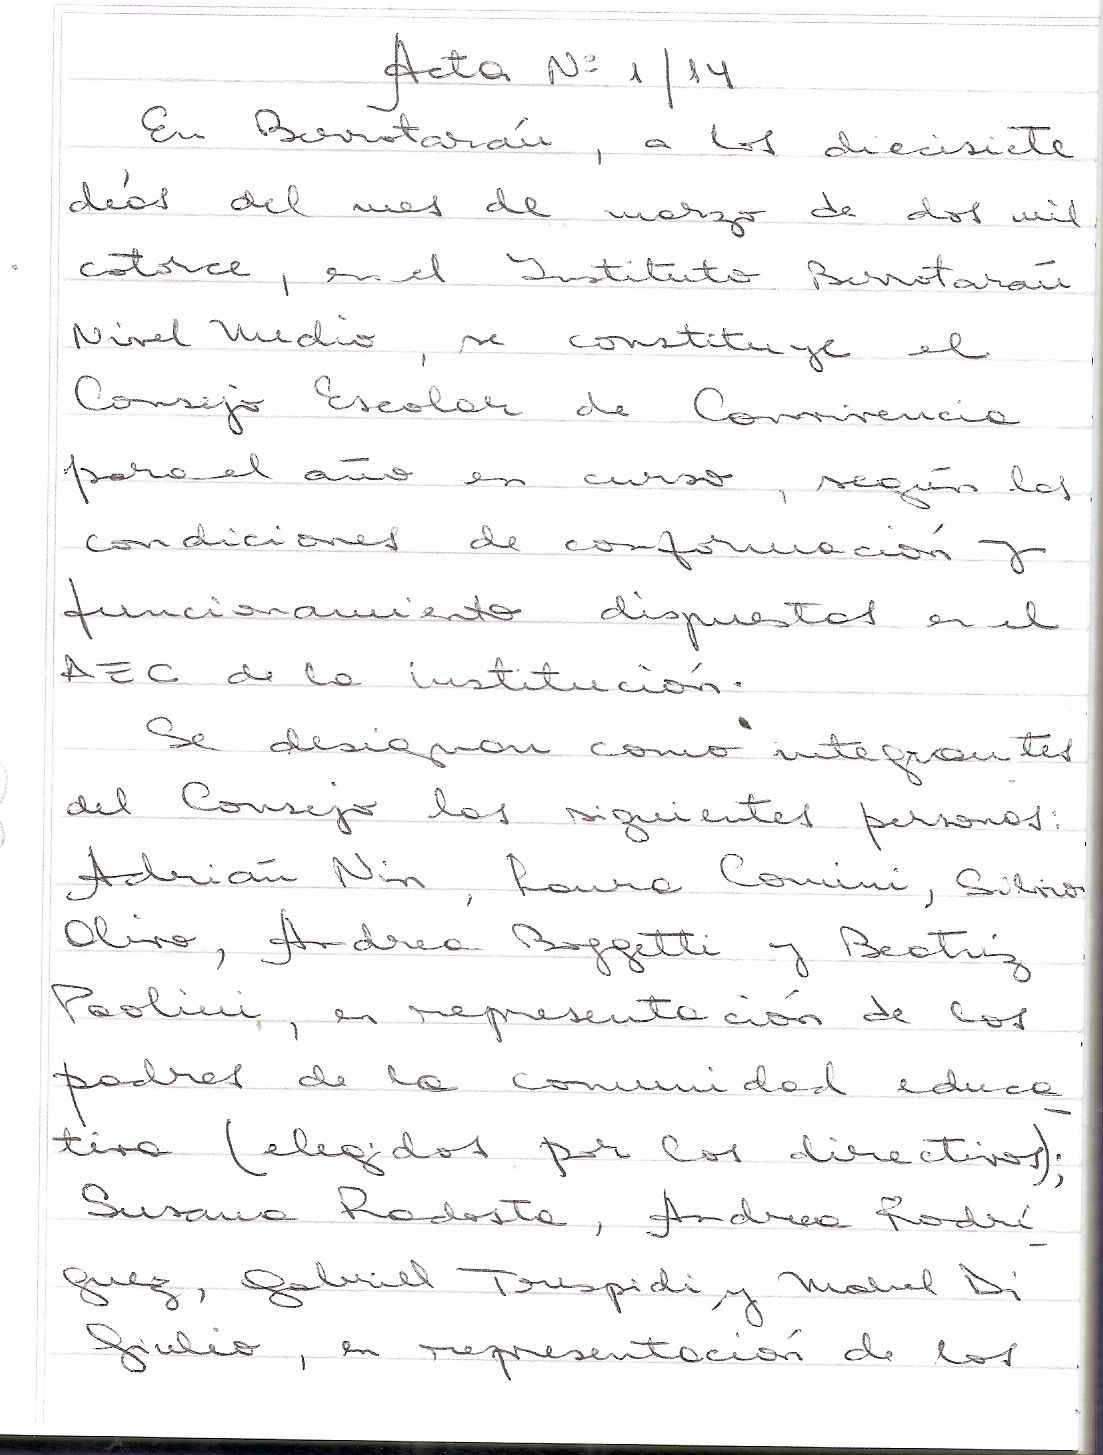 Acta Nº 1/14
En Berrotarán, a los diecisiete
días del mes de marzo de dos mil
catorce, en el Instituto Berrotarán
Nivel Medio, se constituye el
Consejo Escolar de Convivencia
para el año en curso, según las
condiciones de conformación y
funcionamiento dispuestas en el
AEC de la institución.
Se designan como integrantes
del Consejo las siguientes personas:
Adrián Nin, Laura Comini, Silvio
Olivo, Andrea Boggetti y Beatriz
Paolini, en representación de los
padres de la comunidad educa-
tiva (elegidos por los directivos);
Susana Radosta, Andrea Rodrí-
guez, Gabriell Trespidi y Mabel Di
Giulio, en representación de los